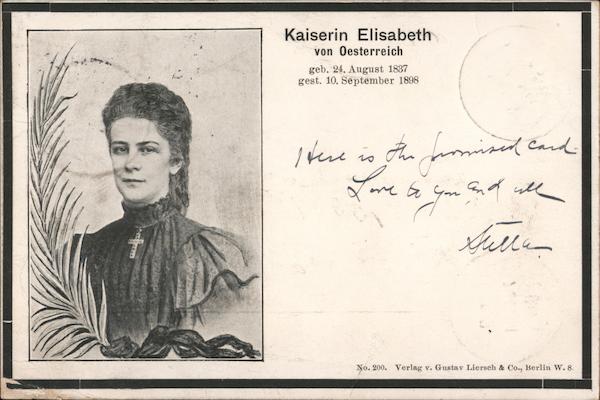 Kaiserin Elisabeth
von Oesterreich
geb. 24. August 1837
gest. 10. September 1898
Here is the promised card.
Love to you and all
Stella
No. 200. Verlag v. Gustav Liersch & Co., Berlin W. 8.